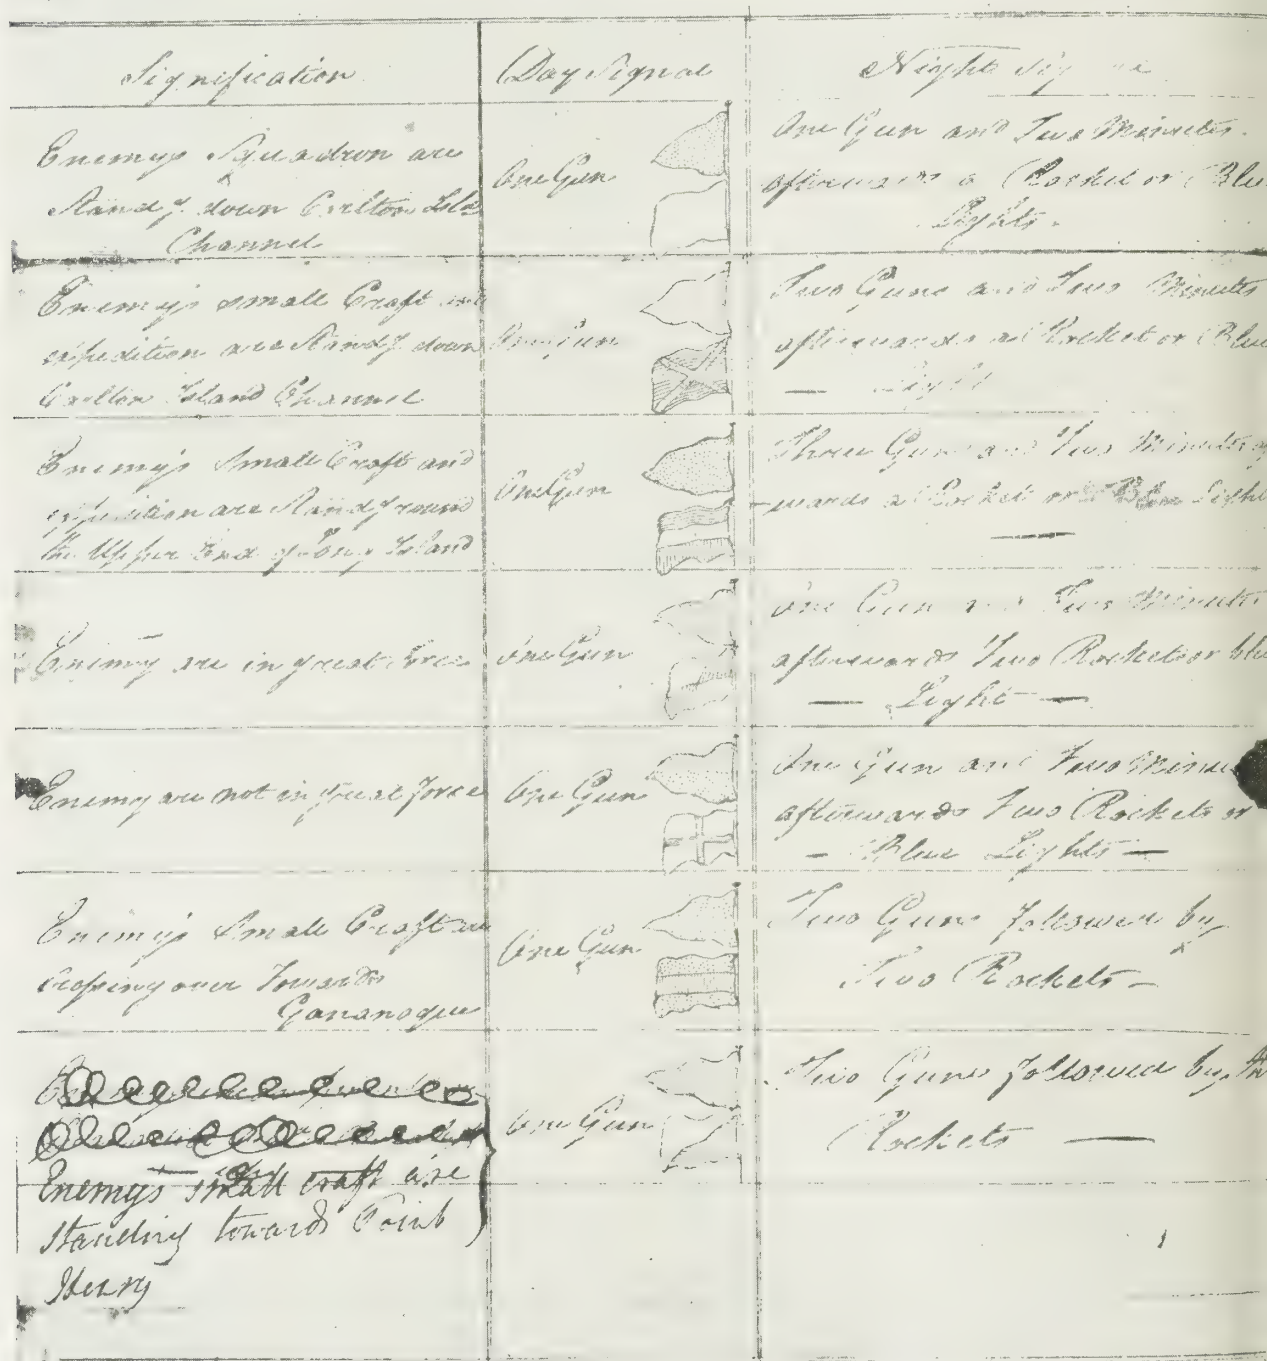 Signification
Day Signal
Night
Enemys Squadron are
Standg. down Carlton Isld
Channel
One Gun
One Gun and Two Minutes
afterwards a Rocket or Blue
Lights.
Enemy's small Craft and
expedition are Standg. down
Carlton Island Channel
One Gun
Two Guns and Two Minutes
afterwards a Rocket or Blue
— Light
Enemy's Small Craft and
expedition are Standg round
the Upper End of Long Island
One Gun
Three Guns and Two Minutes
wards a Rocket or Blue Light
Enimy are in great force
One Gun
One Gun and Two Minutes
afterwards Two Rockets or blue
— Light —
Enemy are not in great force
One Gun
One Gun and Two Minu
afterwards Two Rockets or
— Blue Lights —
Enimy's Small Craft are
Crossing over Towards
Gananoque
One Gun
Two Guns followed by
Two Rockets —
Enemys small craft are
standing towards Point
Henry
One Gun
Two Guns followed by
Rockets —